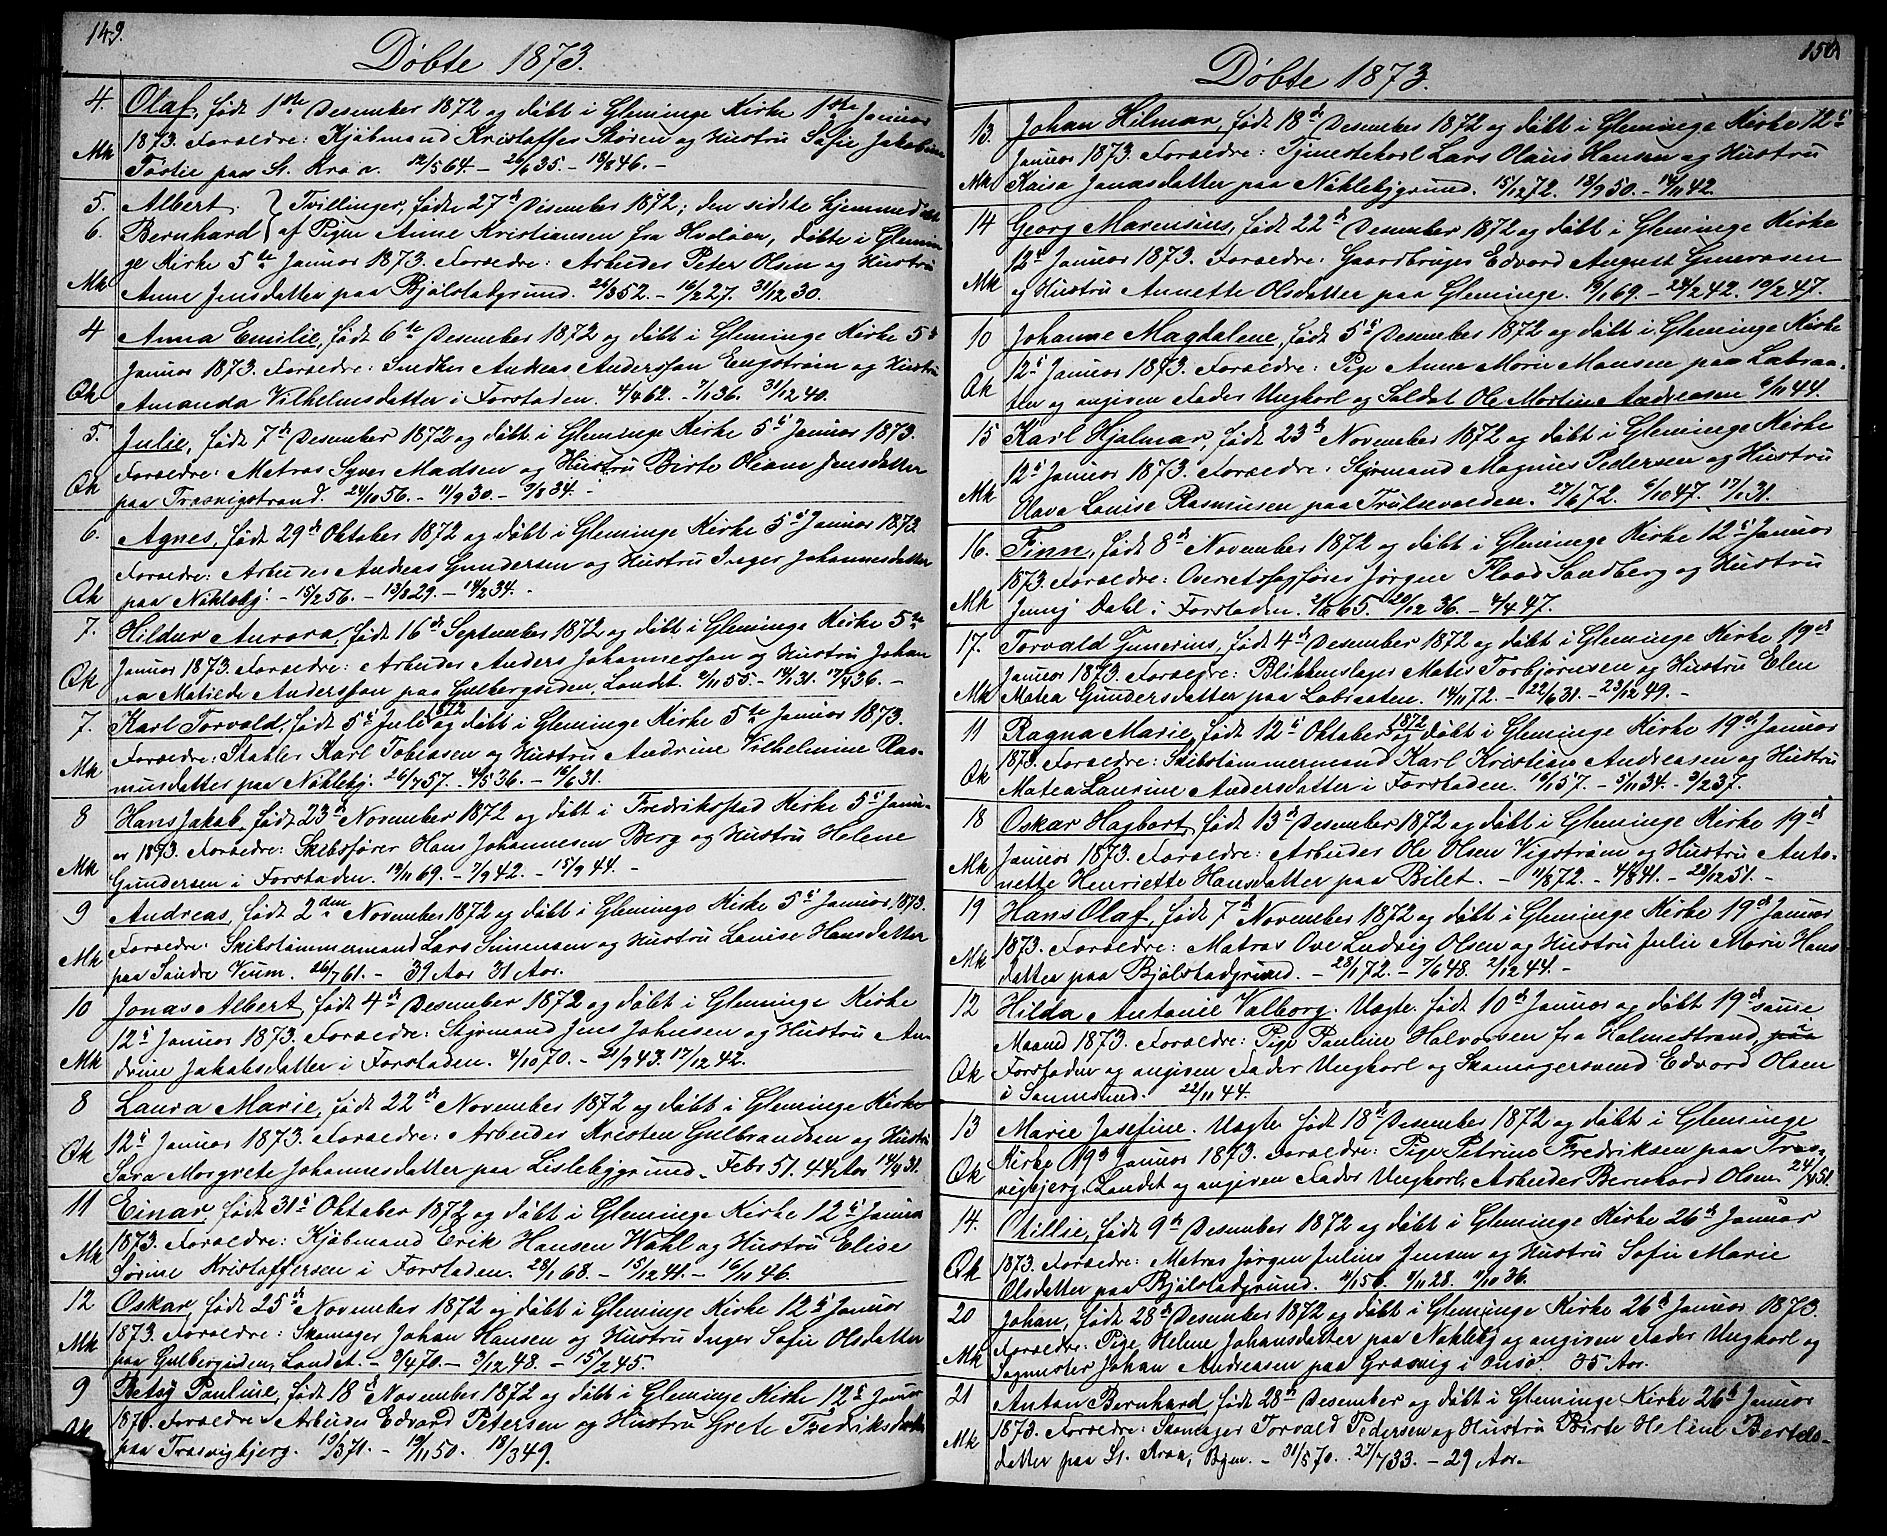 149.
Døbte 1873.
4. Olaf, født 1ste Desember 1872 og døbt i Gleminge Kirke 1ste Januar
1873. Foreldre: Kjøbmand Kristoffer Thøsen og Hustru Sofie Jakobine
Mk paa St. Kraa. 12/5 64. – 26/6 35. – 18/8 46. –
5. Albert } Tvillinger, fødte 27de Desember 1872; den sidste hjemmedøbt
6. Bernhard } af Pigen Anne Kristiansen fra Hvaløen, døbte i Glemin
ge Kirke 5te Januar 1873. Foreldre: Arbeider Peter Olsen og Hustru
Mk Anne Jensdatter paa Bjølstadgrund. 24/3 52. – 16/2 27. 31/12 30.
4 Anna Emilie, født 6te Desember 1872 og døbt i Gleminge Kirke 5te
Januar 1873. Foreldre: Snedker Andreas Andersson Engstrøm og Hustru
Qk Amanda Vilhelmsdatter i Forstaden. 4/4 62. – 7/1 36. 31/12 40.
5. Julie, født 7de Desember 1872 og døbt i Gleminge Kirke 5te Januar 1873.
Foreldre: Matros Syver Madsen og Hustru Birte Oliane Jensdatter
Qk paa Trosvigstrand. 24/10 56. – 11/9 30. – 9/8 34. –
6. Agnes, født 29de Oktober 1872 og døbt i Gleminge Kirke 5te Januar 1873.
Foreldre: Arbeider Andreas Gundersen og Hustru Inger Johannesdatter
Qk paa Nøkleby. – 15/2 56. – 13/8 29. – 14/2 34. –
7. Hildur Aurora, født 16de September 1872 og døbt i Gleminge Kirke 5te
Januar 1873. Foreldre: Arbeider Anders Johannesson og Hustru Johan
Qk na Matilde Andersson paa Gulbergsiden, Landet. 9/11 55. – 14/1 31. 17/4 36. –
7. Karl Torvald, født 5te Juli 1872 og døbt i Gleminge Kirke 5te Januar 1873.
Foreldre: Stabler Karl Tobiasen og Hustru Andrine Vilhelmine Ras-
Mk musdatter paa Nøkleby. 26/7 57. 4/5 36. – 16/6 31.
8 Hans Jakob, født 23de November 1872 og døbt i Fredrikstad Kirke 5te Janu-
ar 1873. Foreldre: Skibsfører Hans Johannesen Berg og Hustru Helene
Mk Gundersen i Forstaden. 19/11 69. – 7/9 42. – 15/9 44. –
9 Andreas, født 2den November 1872 og døbt i Gleminge Kirke 5te Januar 1873.
Foreldre: Skibstømmermand Lars Simensen og Hustru Lovise Hansdatter
Mk paa Søndre Veum. 26/7 61. – 39 Aar 31 Aar.
10 Jonas Albert, født 4de Desember 1872 og døbt i Gleminge Kirke
12te Januar 1873. Foreldre: Styrmand Jens Johnsen og Hustru An-
Mk drine Jakobsdatter i Forstaden. 4/10 70. – 21/9 43. 17/12 42.
8 Laura Marie, født 22de November 1872 og døbt i Gleminge Kirke
12te Januar 1873. Foreldre: Arbeider Kristen Gulbrandsen og Hustru
Qk Sara Margrete Johannesdatter paa Lislebygrund. Febr 51. 44 Aar 14/4 31.
11 Einar, født 31te Oktober 1872 og døbt i Gleminge Kirke 12te Januar
1873. Foreldre: Kjøbmand Erik Hansen Wahl og Hustru Elise
Mk Sørine Kristoffersen i Forstaden. 28/1 68. – 15/12 41. – 16/11 46.
12 Oskar, født 25de November 1872 og døbt i Gleminge Kirke 12te Januar
1873. Foreldre: Skomager Johan Hansen og Hustru Inger Sofie Olsdatter
Mk paa Gulbergsiden, Landet. – 3/4 70. – 3/12 48. – 15/2 45.
9 Betsy Pauline, født 18de November 1872 og døbt i Gleminge Kirke 12te Januar
1873. Foreldre: Arbeider Edvard Petersen og Hustru Grete Fredriksdatter
Qk paa Trosvigbjerg. 19/3 71. – 19/11 50. 18/3 49.
150.
Døbte 1873.
13. Johan Hilmar, født 18de Desember 1872 og døbt i Gleminge Kirke 12te
Januar 1873. Foreldre: Tjenestekarl Lars Olaus Hansen og Hustru
Mk Kaisa Jonasdatter paa Nøklebygrund. 15/12 72. 18/9 50. – 14/11 42.
14 Georg Marensius, født 22de Desember 1872 og døbt i Gleminge Kirke
12te Januar 1873. Foreldre: Gaardbruger Edvard August Gunersen
Mk og Hustru Annette Olsdatter paa Gleminge. 19/1 69. – 24/2 42. 10/2 47.
10 Johanne Magdalene, født 5te Desember 1872 og døbt i Gleminge Kirke
12te Januar 1873. Foreldre: Pige Anne Marie Monsen paa Labraa-
Qk ten og angiven Fader Ungkarl og Soldat Ole Martin Andreasen 6/11 44.
15 Karl Hjalmar, født 23de November 1872 og døbt i Gleminge Kirke
12te Januar 1873. Foreldre: Styrmand Magnus Pedersen og Hustru
Mk Olava Louise Rasmusen paa Trulsevolden. 27/6 72. 6/10 47. 17/1 31.
16. Finn, født 8de November 1872 og døbt i Gleminge Kirke 12te Januar
1873. Foreldre: Overretssagfører Jørgen Flood Sandberg og Hustru
Mk Jenny Dahl i Forstaden. 2/8 65. 20/12 36. – 4/4 47.
17. Torvald Gunerius, født 4de Desember 1872 og døbt i Gleminge Kirke 19de
Januar 1873. Foreldre: Blikkenslager Matis Torbjørnsen og Hustru Elen
Mk Matea Gundersdatter paa Labraaten. 14/11 72. – 22/6 31. – 23/12 49. –
11 Ragna Marie, født 12te Oktober 1872 og døbt i Gleminge Kirke 19de Januar
1873. Foreldre: Skibstømmermand Karl Kristian Andreasen og Hustru
Qk Matea Laurine Andersdatter i Forstaden. 16/1 57. – 5/11 34. – 9/2 37.
18 Oskar Hagbart, født 13de Desember 1872 og døbt i Gleminge Kirke 19de
Januar 1873. Foreldre: Arbeider Ole Olsen Vigstrøm og Hustru Anto-
Mk nette Henriette Hansdatter paa Bilet. – 11/8 72. – 4/8 41. – 28/12 51. –
19 Hans Olaf, født 7de November 1872 og døbt i Gleminge Kirke 19de Januar
1873. Foreldre: Matros Ove Ludvig Olsen og Hustru Julie Marie Hans
Mk datter paa Bjølstadgrund. – 28/1 72. – 7/6 48. 2/12 44. –
12 Hilda Antonie Valborg. Uægte. født 10de Januar og døbt 19de samme
Maaned 1873. Foreldre: Pige Pauline Halvorsen fra Holmestrand, paa
Qk Forstaden og angiven Fader Ungkarl og Skomagersvend Edvard Olsen
i Sannesund. 22/11 44.
13 Marie Josefine. Uægte født 18de Desember 1872 og døbt i Gleminge
Kirke 19de Januar 1873. Foreldre: Pige Petrine Fredriksen paa Tros-
Qk vigbjerg, Landet og angiven Fader Ungkarl Arbeider Bernhard Olsen 24/4 51.
14. Otillie, født 9de Desember 1872 og døbt i Gleminge Kirke 26de Januar
1873. Foreldre: Matros Jørgen Julius Jensen og Hustru Sofie Marie
Qk Olsdatter paa Bjølstadgrund. 4/1 56. 9/11 28. 11/10 36.
20 Johan, født 28de Desember 1872 og døbt i Gleminge Kirke 26de Januar 1873.
Foreldre: Pige Helene Johansdatter paa Nøkleby og angiven Fader Ungkarl og
Mk Sagmester Johan Andreasen paa Græsvig i Onsø. 35 Aar.
21 Anton Bernhard, født 28de Desember og døbt i Gleminge Kirke 26de Januar
1873. Foreldre: Skomager Torvald Pedersen og Hustru Birte Helene Bertels-
Mk datter paa St. Kraa, Byen. – 31/5 70. 27/7 33. – 29 Aar.